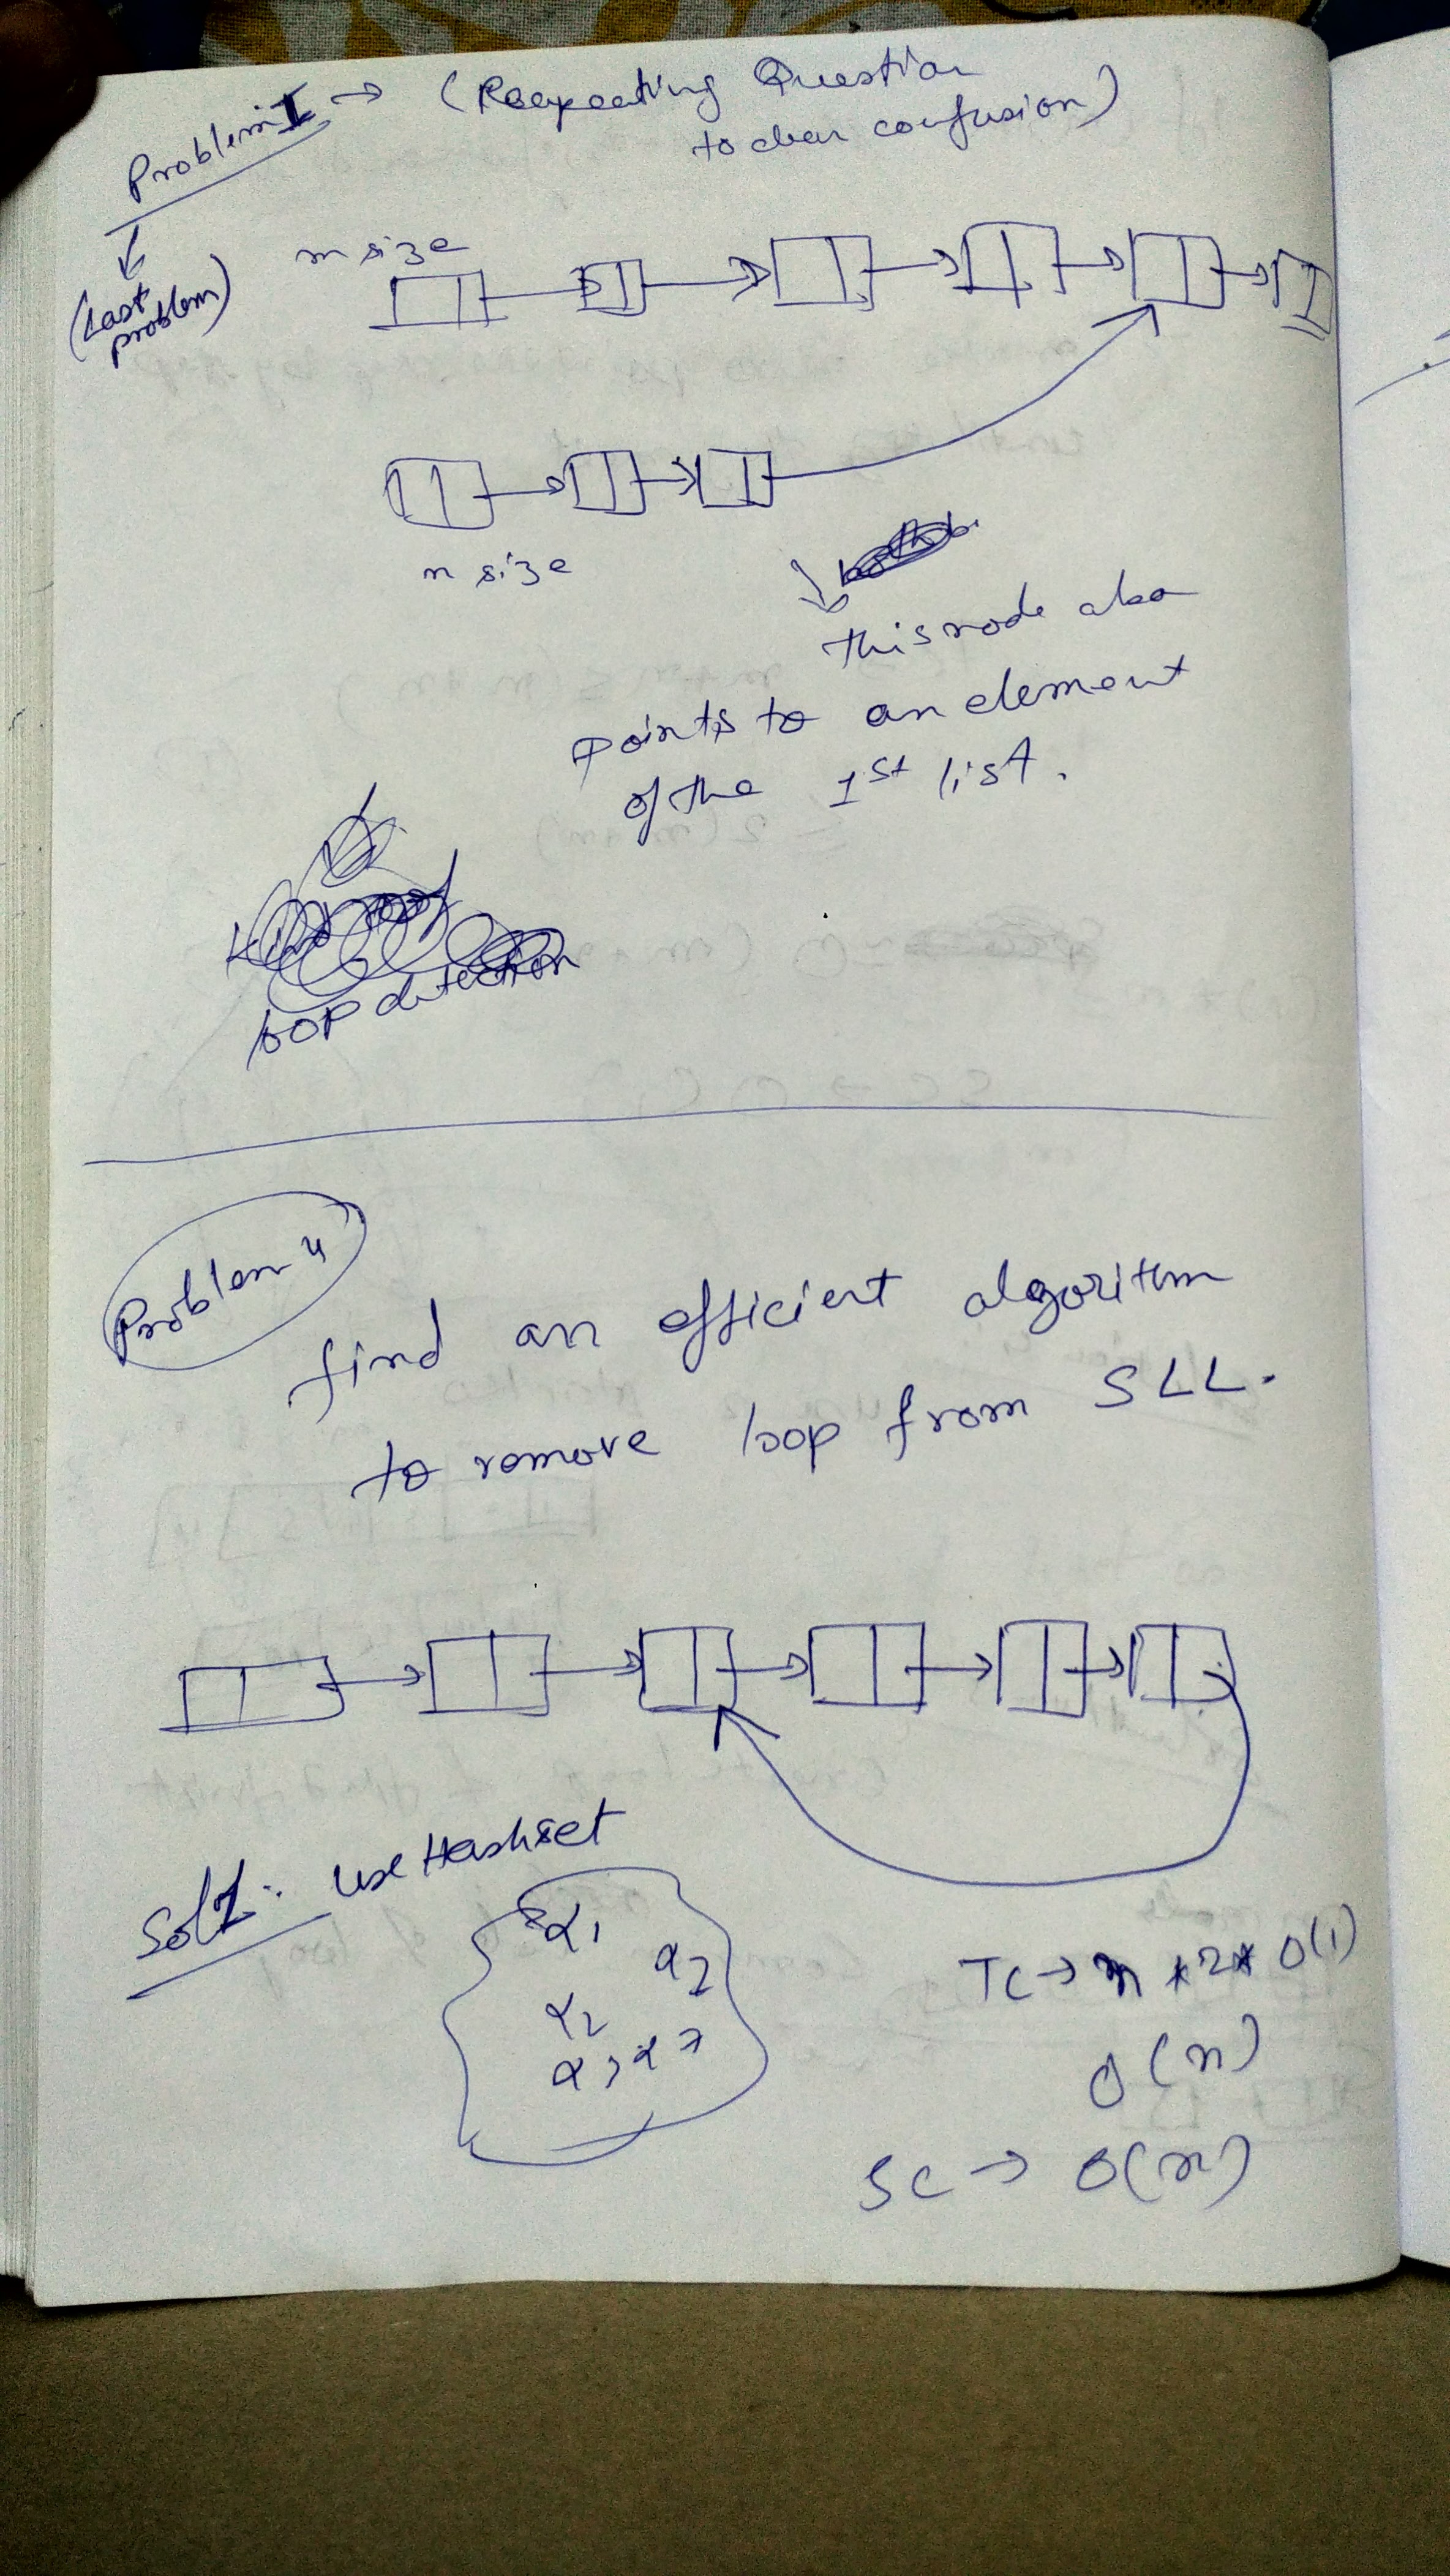 Problem I → (Reapeating Question
to clear confusion)
(Last
problem)
m size
n size
this node also
points to an element
of the 1st list.
loop detection
Problem 4
find an efficient algorithm
to remove loop from SLL.
Sol 1: use Hashset
α1
α2
α2
α3
TC → n * 2 * O(1)
O(n)
SC → O(n)